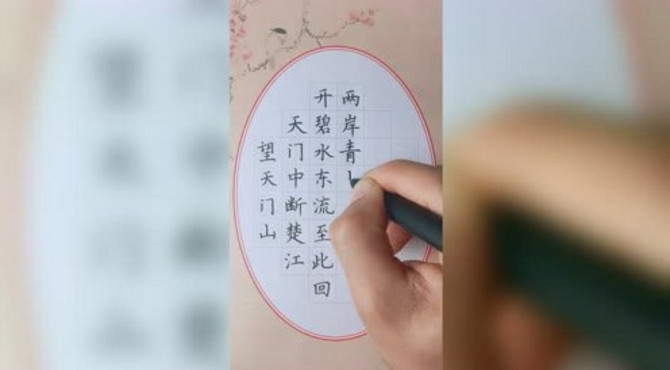 望天门山
天门中断楚江
开碧水东流至此回
两岸青